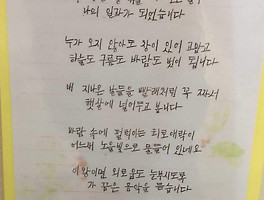 나의 일과가 되었습니다
누가 오지 않아도 창이 있어 고맙고
하늘도 구름도 바람도 벗이 됩니다
내 지나온 날들을 빨래처럼 꼭 짜서
햇살에 널어두고 봅니다
바람 속에 펄럭이는 희로애락이
어느새 노을빛으로 물들어 있네요
이왕이면 외로움도 눈부시도록
가 꿈은 음악을 듣습니다